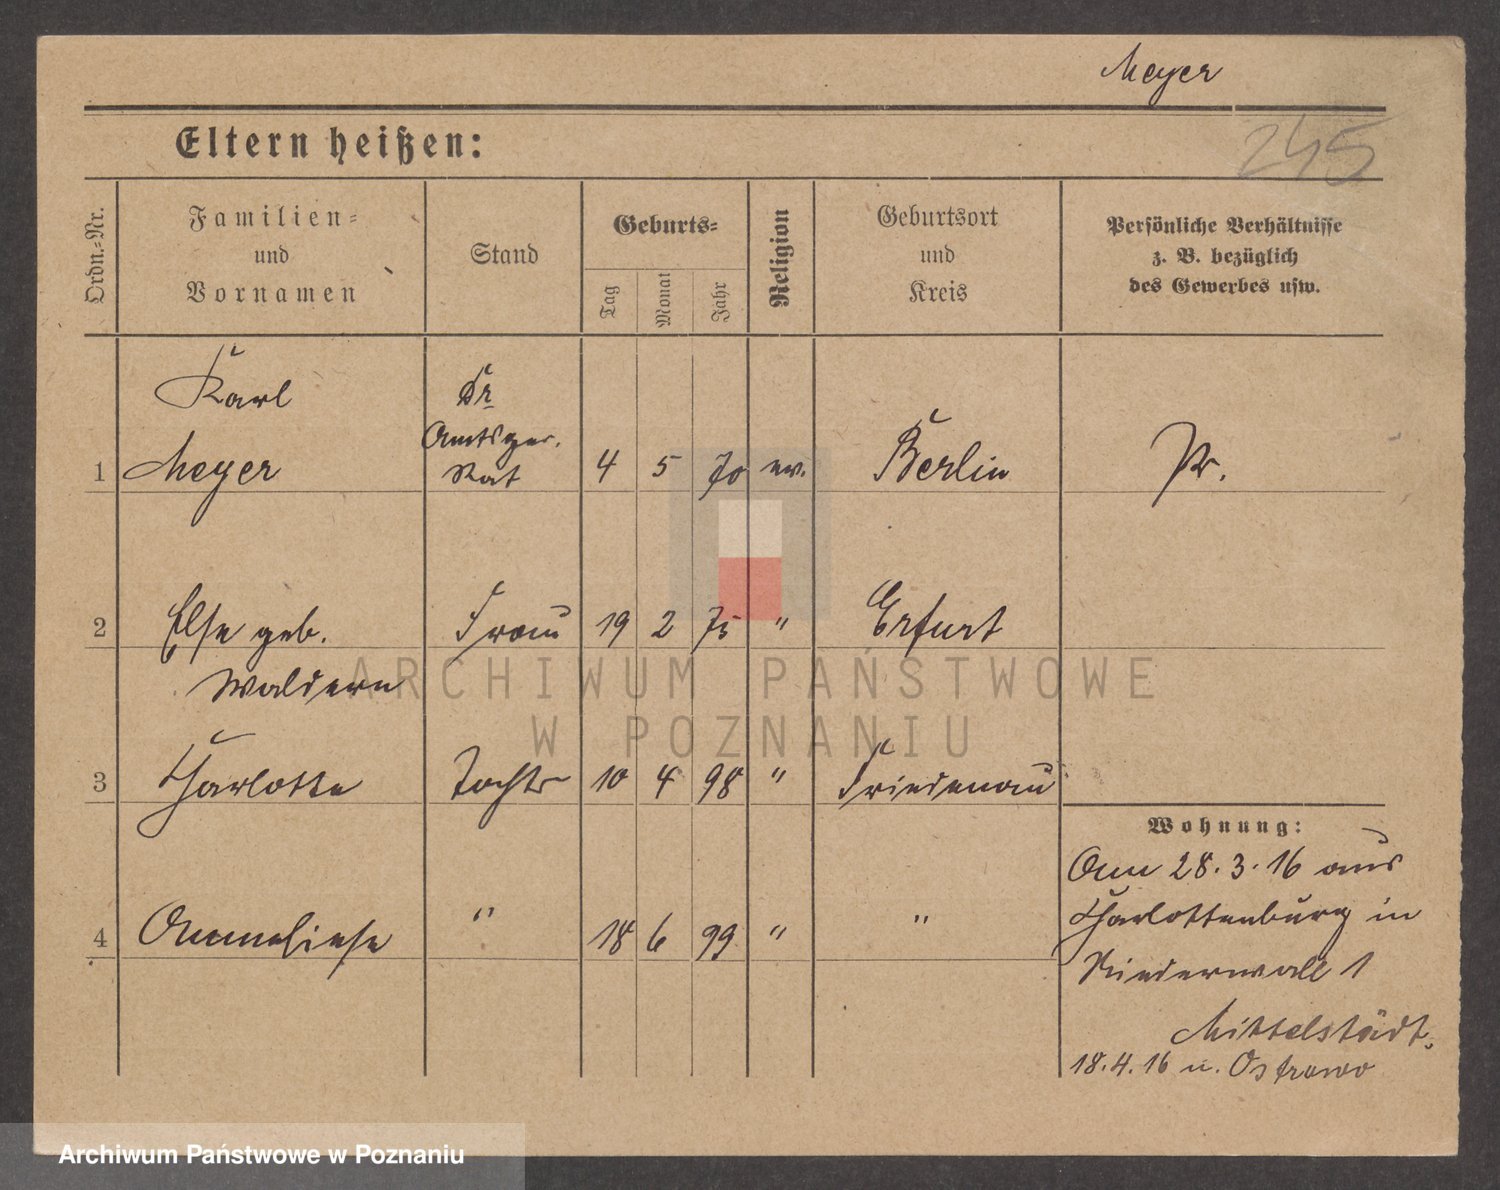 Meyer
245
Eltern heißen:
Ordn.=Nr.
Familien=
und
Vornamen
Stand
Geburts=
Tag
Monat
Jahr
Religion
Geburtsort
und
Kreis
Persönliche Verhältnisse
z. B. bezüglich
des Gewerbes usw.
1
Karl
Meyer
Dr
Amtsger.
Rat
4 5 70 ev.
Berlin
Pr.
2
Else geb.
Waldern
Frau
19 2 75 "
Erfurt
3
Charlotte
Tochter
10 4 98 "
Friedenau
4
Anneliese
"
18 6 99 "
"
Wohnung:
Am 28.3.16 aus
Charlottenburg in
Niederwall 1
Mittelstädt.
18.4.16 n. Ostrowo
ARCHIWUM PAŃSTWOWE
W POZNANIU
Archiwum Państwowe w Poznaniu